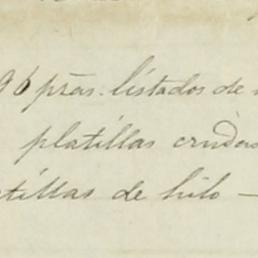 96 pzas. listados de
platillas crudas
tillas de hilo —